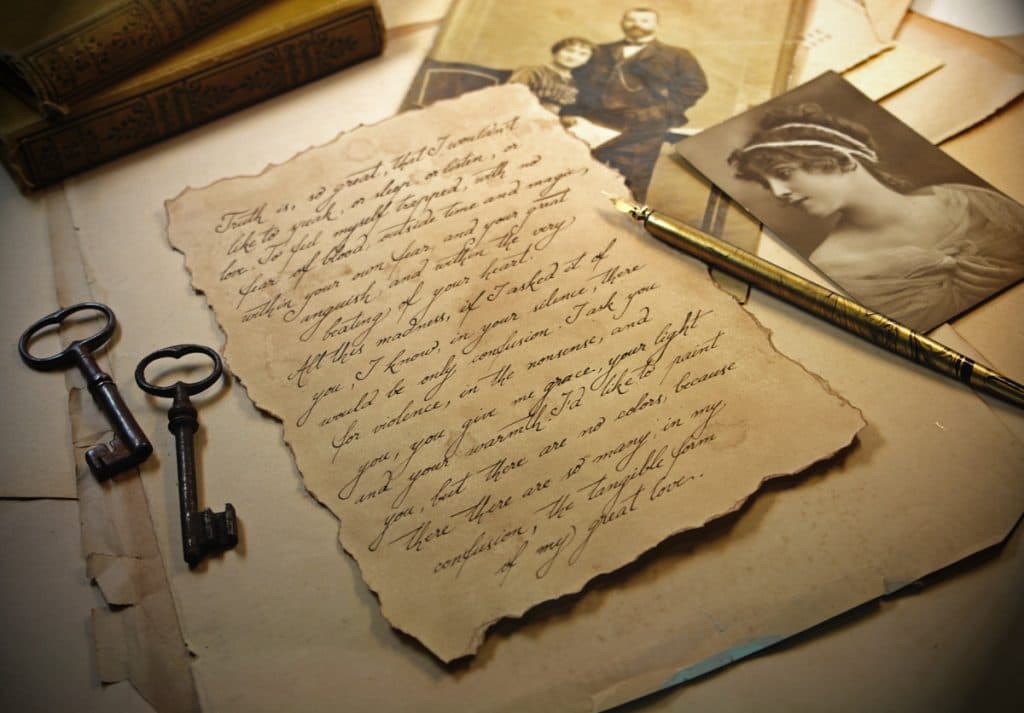 Truth is, so great, that I wouldn't
like to speak, or sleep or listen, or
love. To feel myself trapped, with no
fear of blood, outside time and magic,
within your own fear, and your great
anguish, and within the very
beating of your heart.
All this madness, if I asked it of
you, I know, in your silence, there
would be only confusion. I ask you
for violence, in the nonsense, and
you, you give me grace, your light
and your warmth. I'd like to paint
you, but there are no colors, because
there there are so many, in my
confusion, the tangible form
of my great love..